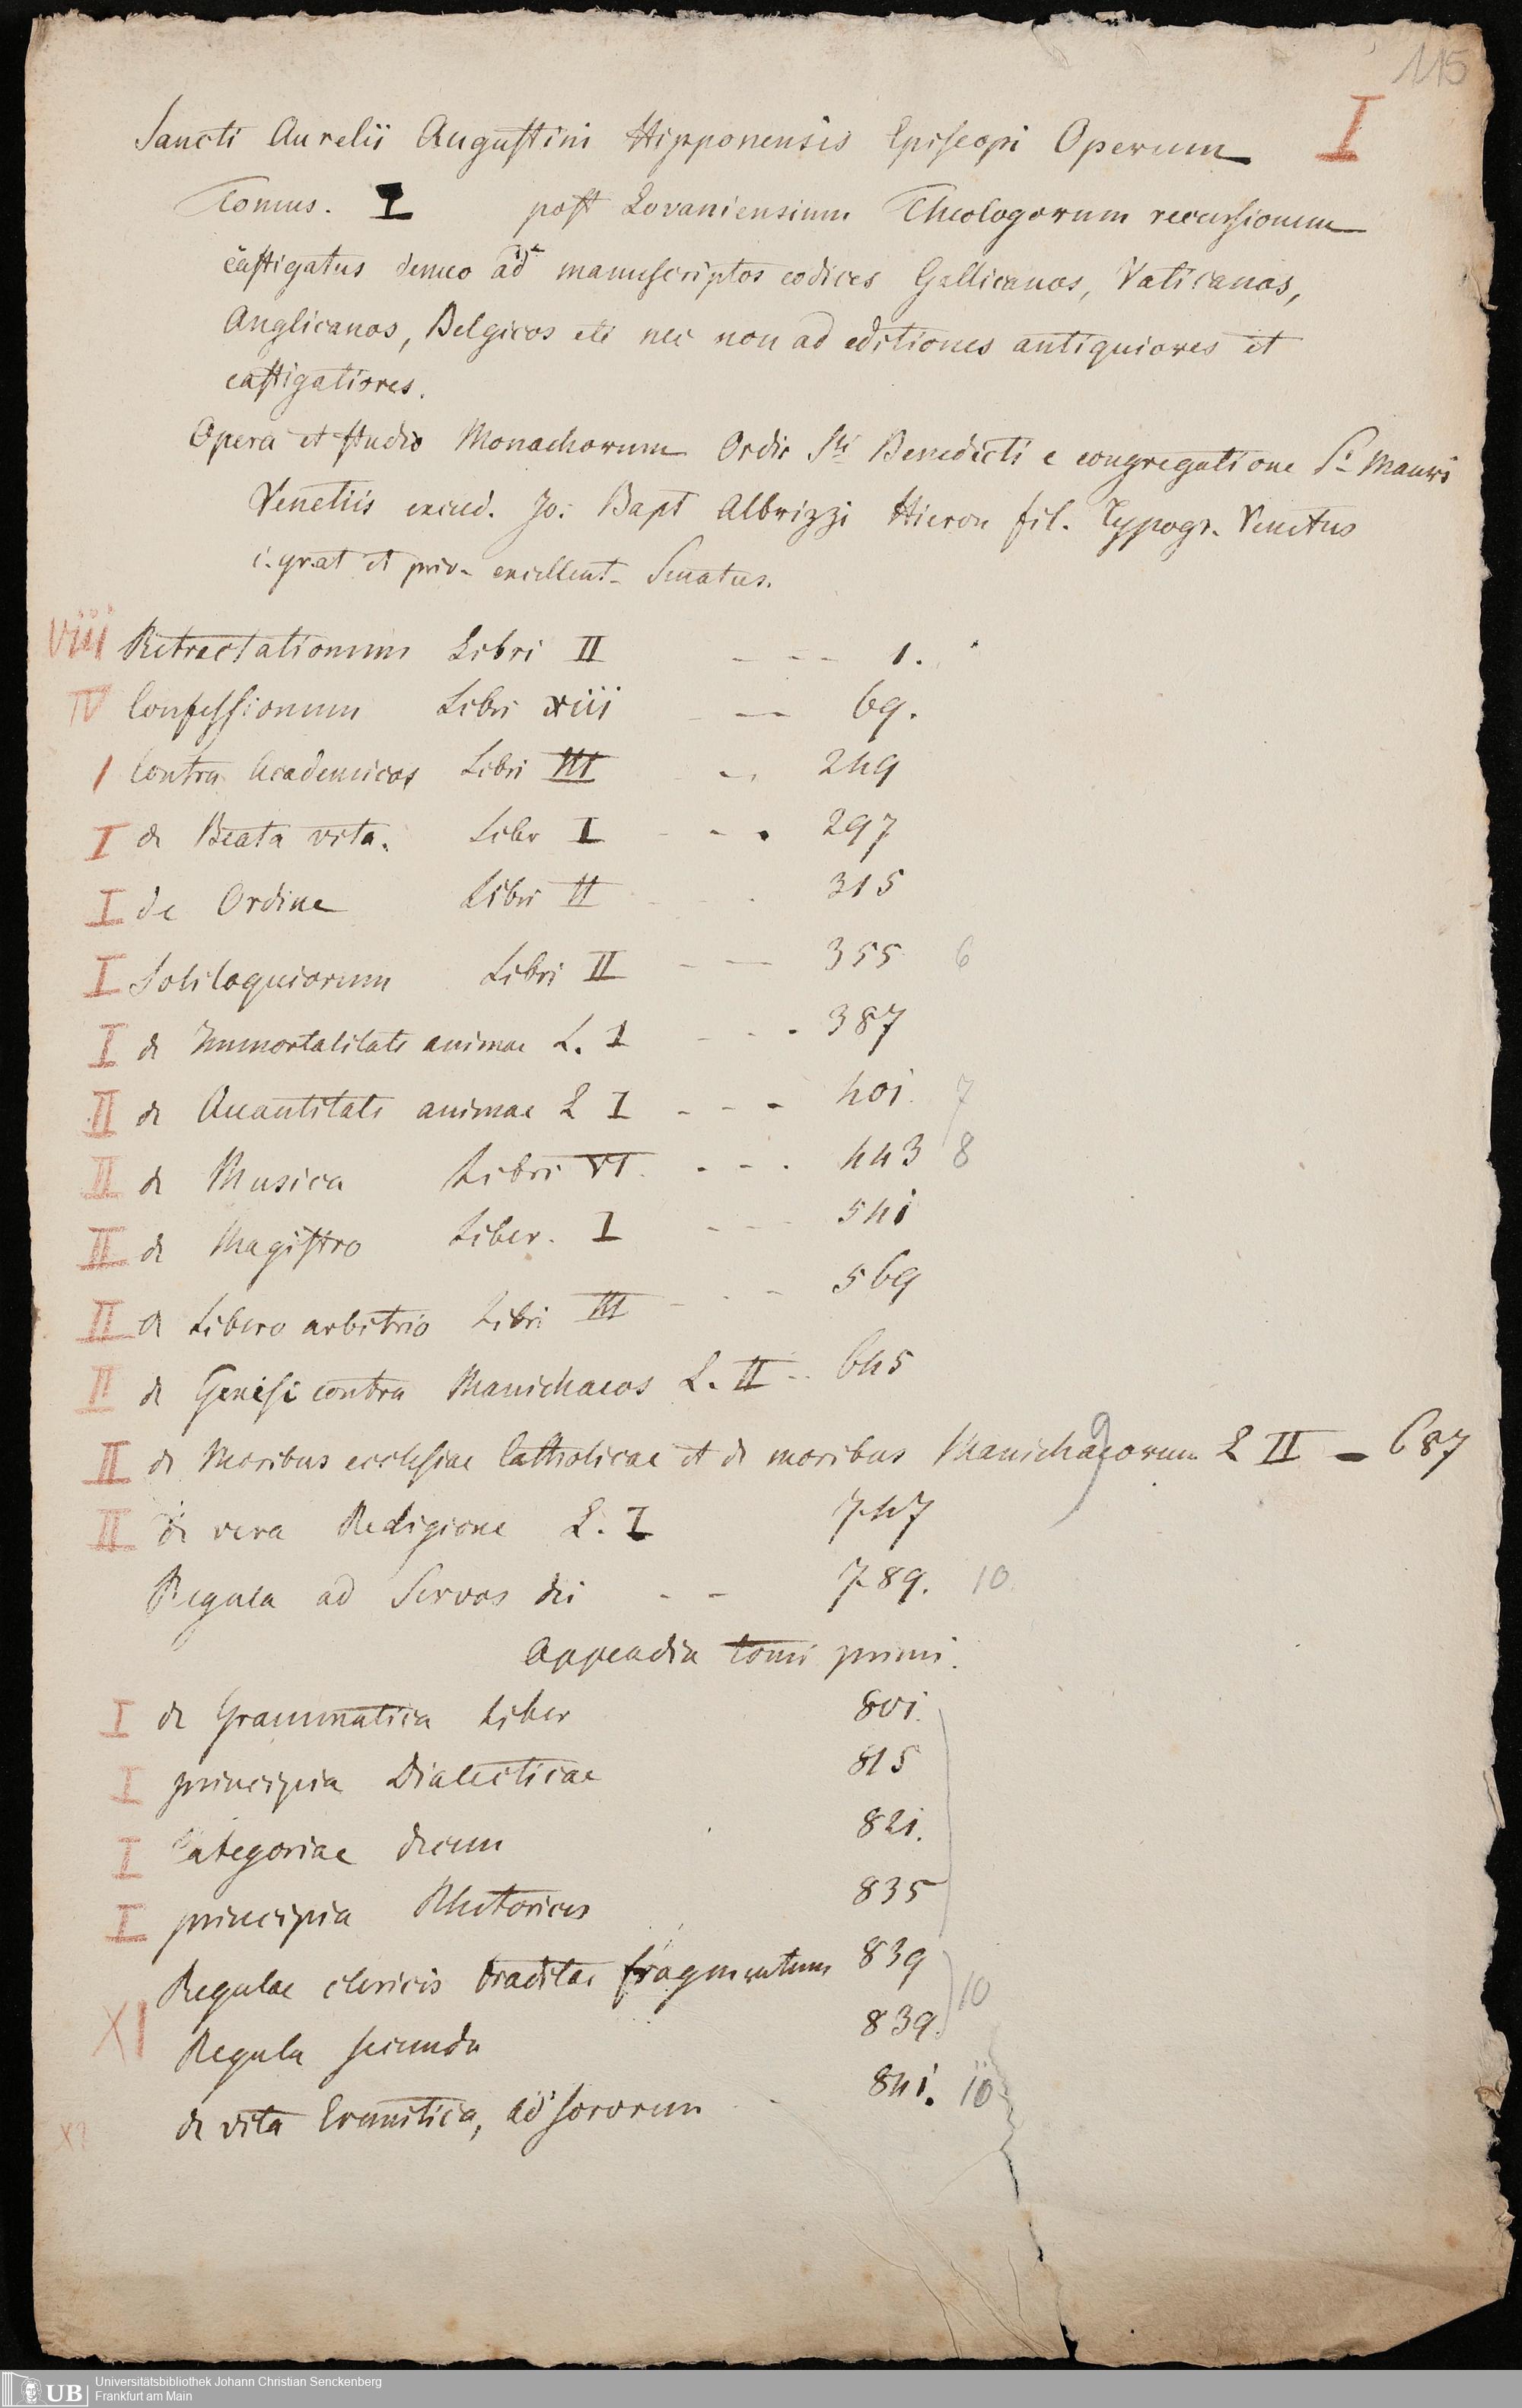 115
I
Sancti Aurelii Augustini Hipponensis Episcopi Operum
Tomus. I post Lovaniensium Theologorum recensionem
castigatus denuo ad manuscriptos codices Gallicanos, Vaticanos,
Anglicanos, Belgicos etc nec non ad editiones antiquiores et
castigatiores.
Opera et studio Monachorum Ordis Sti Benedicti e congregatione S. Mauri
Venetiis excud. Jo: Bapt Albrizzi Hieron fil. Typogr. Venetus
c. grat et priv. excellent. Senatus.
VIII Retractationum Libri II - - - 1.
IV Confessionum Libri XIII - — 69.
I Contra Academicos Libri III - - 249
I de Beata vita. Liber I - - . 297
I de Ordine Libri II - - . 315
I Soliloquiorum Libri II - — 355 6
I de Immortalitate animae L. I - - - 387
II de Quantitate animae L I - - - 401. 7
II de Musica Libri VI. - - . 443 8
II de Magistro Liber. I - - - 541
II de Libero arbitrio Libri III - - - 569
II de Genesi contra Manichaeos L. II - . 645
II de Moribus ecclesiae Catholicae et de moribus Manichaeorum L II - 687
9
II de vera Religione L. I 747
Regula ad Servos dei - - 789. 10.
Appendix tomi primi.
I de Grammatica Liber 801.
I principia Dialecticae 815
I Categoriae decem 821.
I principia Rhetorices 835
Regulae clericis traditae fragmentum 839
10
XI Regula secunda 839.
X? de vita Eremitica, ad sororem - 841. 10
UB Universitätsbibliothek Johann Christian Senckenberg
Frankfurt am Main